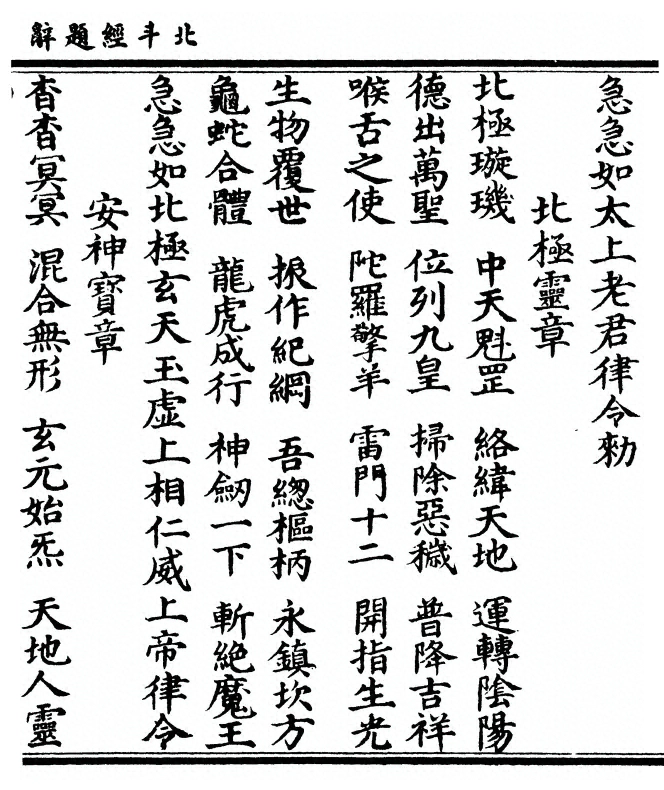 北斗經題辭
急急如太上老君律令勑
北極靈章
北極璇璣 中天魁罡 絡緯天地 運轉陰陽
德出萬聖 位列九皇 掃除惡穢 普降吉祥
喉舌之使 陀羅擎羊 雷門十二 開指生光
生物覆世 振作紀綱 吾總樞柄 永鎮坎方
龜蛇合體 龍虎成行 神劒一下 斬絶魔王
急急如北極玄天玉虛上相仁威上帝律令
安神寶章
杳杳冥冥 混合無形 玄元始炁 天地人靈